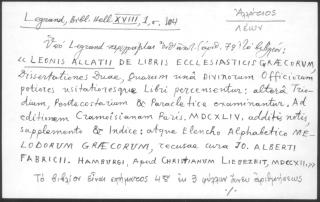 Legrand, Bibl. Hell. XVIII, 1, σ. 104
Ἀλλάτιος
Λέων
Ὑπὸ Legrand περιγράφεται (ἀρ. 78) τὸ βιβλίον:
« LEONIS ALLATII DE LIBRIS ECCLESIASTICIS GRÆCORUM,
Dissertationes Duae, quarum una DIVINORUM Officiorum
potiores usitatioresque Libri percensentur: altera Trio-
dium, Pentecostarium & Paracletice examinantur. Ad
editionem Cramoisianam Paris. MDCXLIV, additis notis,
supplemento & Indice; atque Elencho Alphabetico ME-
LODORUM GRÆCORUM, recusae cura JO. ALBERTI
FABRICII. HAMBURGI, Apud CHRISTIANUM LIEBEZEIT, MDCCXII.»
Τὸ βιβλίον εἶναι σχήματος 4ον ἐκ 3 φύλλων ἄνευ ἀριθμήσεως
./.